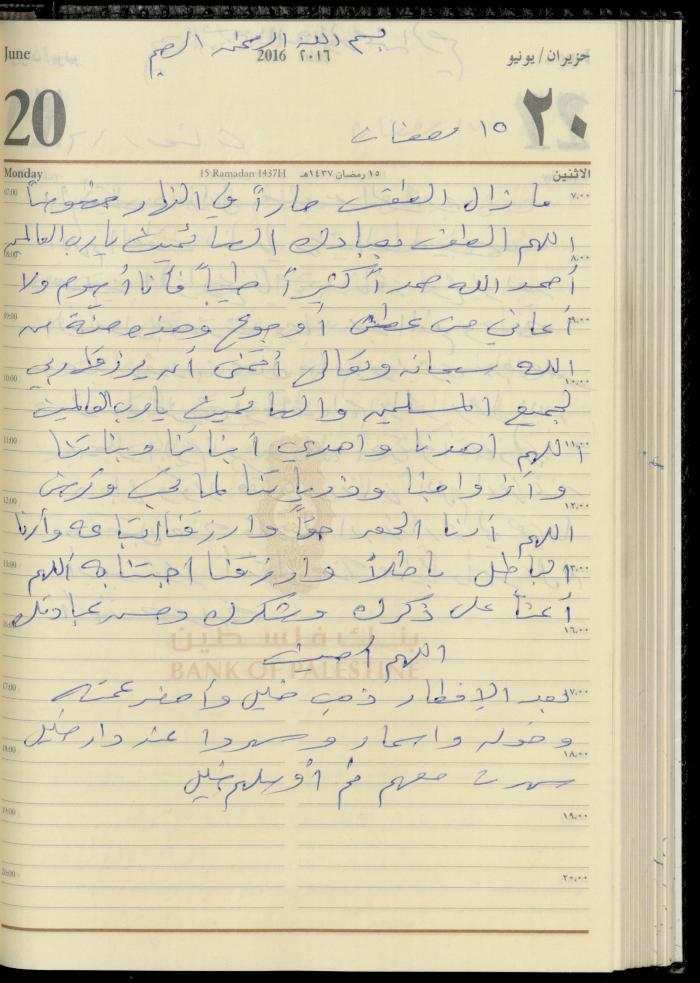 بسم الله الرحمن الرحيم
June
2016 ٢٠١٦
حزيران / يونيو
20
١٥ رمضان
٢٠
Monday
15 Ramadan 1437H ١٥ رمضان ١٤٣٧هـ
الاثنين
ما زال الطقس حاراً في النهار خصوصاً
اللهم الطف بعبادك الصائمين يا رب العالمين
أحمد الله حمداً كثيراً طيباً فأنا أصوم ولا
أعاني من عطش أو جوع وهذه منّة من
الله سبحانه وتعالى أتمنى أن يرزقها ربي
لجميع المسلمين والصائمين يا رب العالمين
اللهم اهدنا واهدي أبناءنا وبناتنا
وأزواجنا وذرياتنا لما تحب وترضى
اللهم أرنا الحق حقاً وارزقنا اتباعه وأرنا
الباطل باطلاً وارزقنا اجتنابه اللهم
أعنا على ذكرك وشكرك وحسن عبادتك
اللهم آمين
بنك فلسطين
BANK OF PALESTINE
بعد الإفطار ذهب خليل وأحضر عمته
وخوله واسمار وسهروا عند دار خليل
سهرت معهم ثم أوصلهم خليل
07:00 ٧,٠٠
08:00 ٨,٠٠
09:00 ٩,٠٠
10:00 ١٠,٠٠
11:00 ١١,٠٠
12:00 ١٢,٠٠
١٦,٠٠
17:00 ١٧,٠٠
18:00 ١٨,٠٠
19:00 ١٩,٠٠
20:00 ٢٠,٠٠